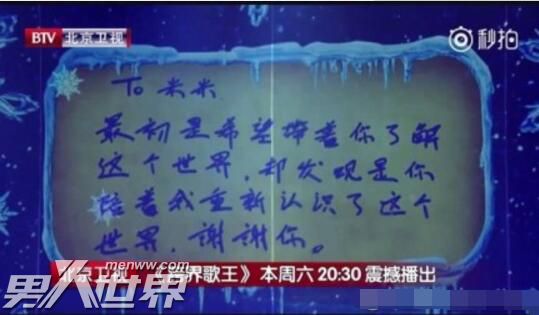 BTV 北京卫视
秒拍
To 米米
最初是希望带着你了解
这个世界,却发现是你
陪着我重新认识了这个
世界,谢谢你。
北京卫视 《跨界歌王》本周六 20:30 震撼播出
menww.com
男人世界